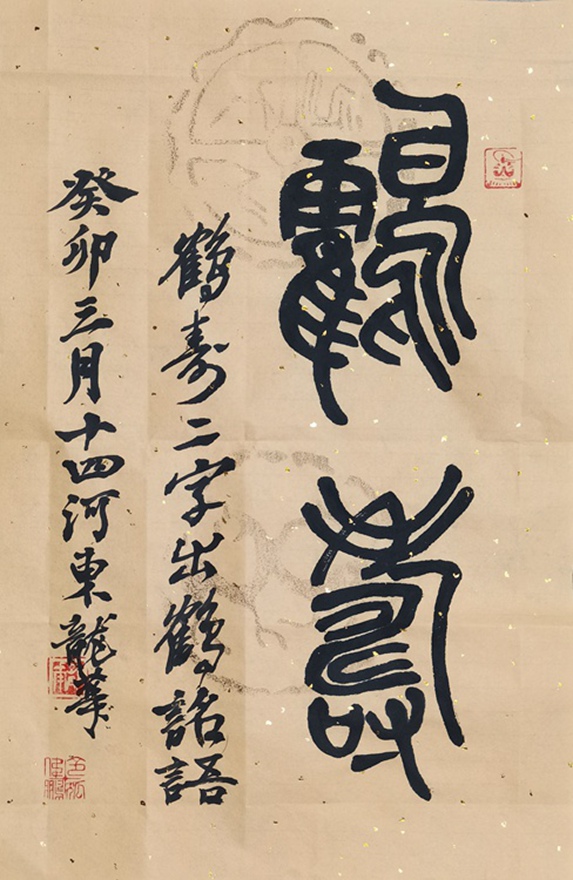 鶴壽
鶴寿二字出鶴銘語
癸卯三月十四河東龍華